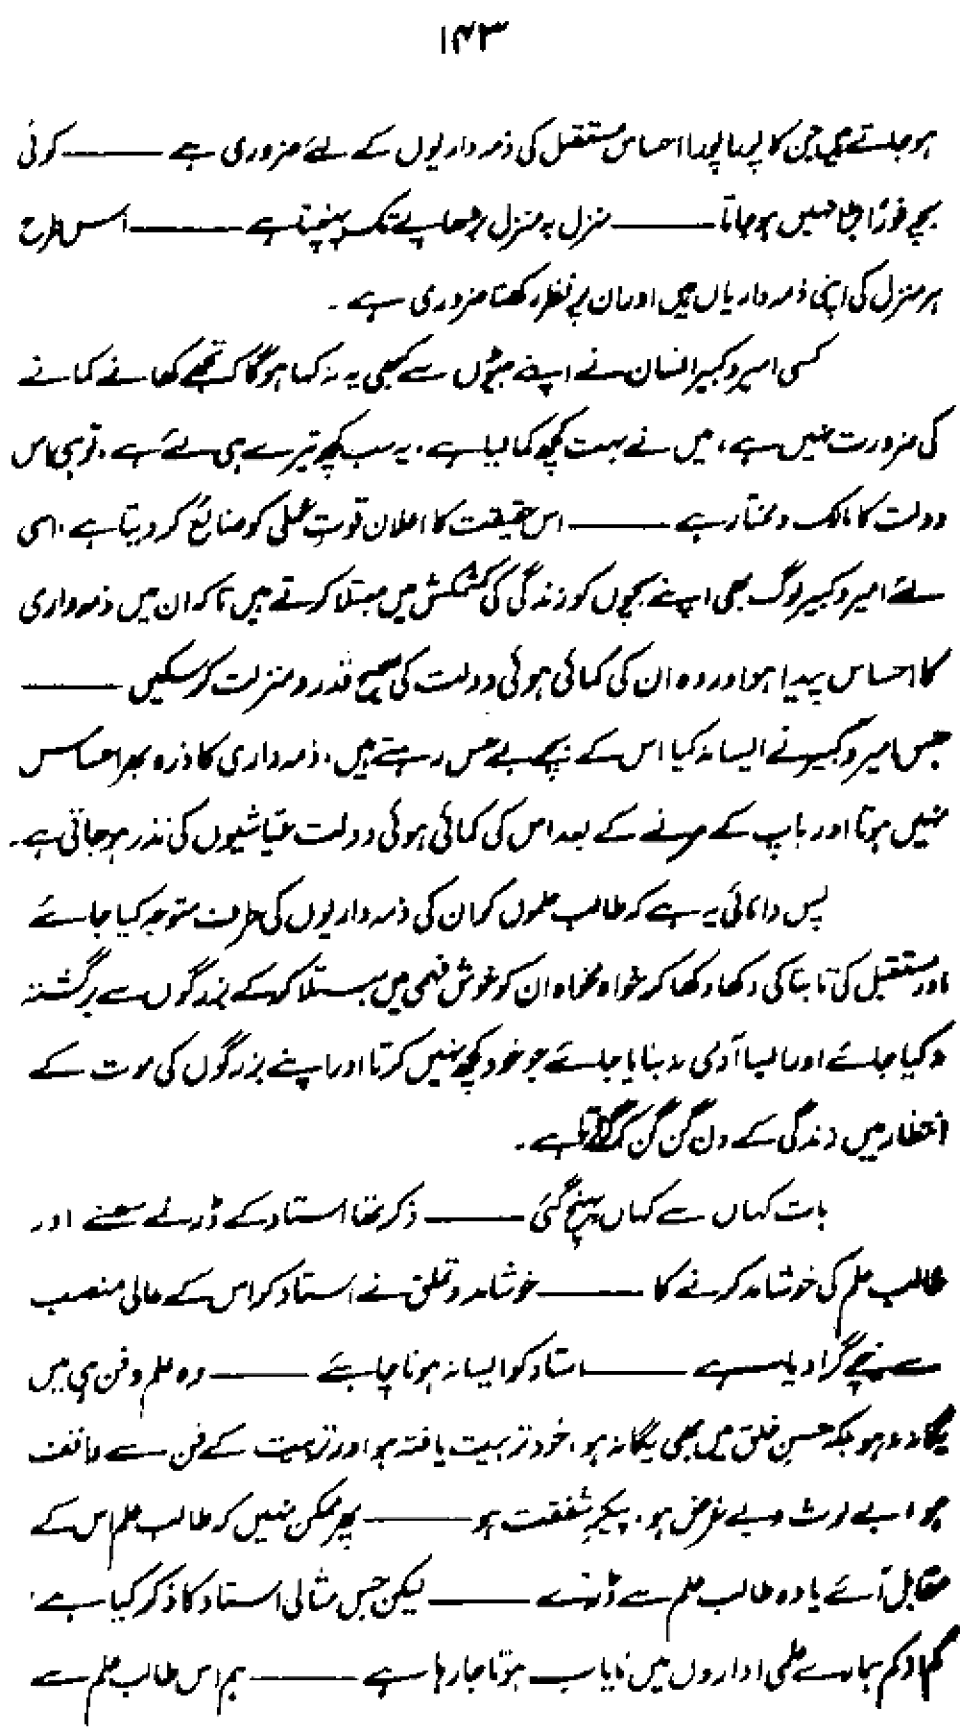 ۱۴۳
ہو جاتے ہیں جن کا پورا پورا احساس مستقبل کی ذمہ داریوں کے لئے ضروری ہے ——— کوئی
بچہ فوراً بڑا نہیں ہو جاتا ——— منزل بہ منزل بڑھاپے تک پہنچتا ہے ——— اسی طرح
ہر منزل کی اپنی ذمہ داریاں ہیں اور ان پر نظر رکھنا ضروری ہے ۔
کسی امیر و کبیر انسان نے اپنے بیٹوں سے کبھی یہ نہ کہا ہوگا کہ تجھے کھانے کمانے
کی ضرورت نہیں ہے، میں نے بہت کچھ کما لیا ہے، یہ سب کچھ تیرے ہی لئے ہے، تو ہی اس
دولت کا مالک و مختار ہے ——— اس حقیقت کا اعلان قوتِ عملی کو ضائع کر دیتا ہے، اسی
لئے امیر و کبیر لوگ بھی اپنے بچوں کو زندگی کی کشمکش میں مبتلا کرتے ہیں تاکہ ان میں ذمہ داری
کا احساس پیدا ہو اور وہ ان کی کمائی ہوئی دولت کی صحیح قدر و منزلت کر سکیں ———
جس امیر و کبیر نے ایسا نہ کیا اس کے بچے بے حس رہتے ہیں، ذمہ داری کا ذرہ بھر احساس
نہیں ہوتا اور باپ کے مرنے کے بعد اس کی کمائی ہوئی دولت عیاشیوں کی نذر ہو جاتی ہے۔
پس دانائی یہ ہے کہ طالب علموں کو ان کی ذمہ داریوں کی طرف متوجہ کیا جائے
اور مستقبل کی تابناکی دکھا دکھا کر خواہ مخواہ ان کو خوش فہمی میں مبتلا کر کے بزرگوں سے برگشتہ
نہ کیا جائے اور ایسا آدمی نہ بنایا جائے جو خود کچھ نہیں کرتا اور اپنے بزرگوں کی موت کے
انتظار میں زندگی کے دن گن گن کر گزارتا ہے ۔
بات کہاں سے کہاں پہنچ گئی ——— ذکر تھا استاد کے ڈرنے سہمنے اور
طالب علم کی خوشامد کرنے کا ——— خوشامد و تملق نے استاد کو اس کے عالی منصب
سے نیچے گرا دیا ہے ——— استاد کو ایسا نہ ہونا چاہئے ——— وہ علم و فن ہی میں
یگانہ نہ ہو بلکہ حسنِ خلق میں بھی یگانہ ہو، خود تربیت یافتہ ہو اور تربیت کے فن سے واقف
ہو، بے لوث و بے غرض ہو، پیکرِ شفقت ہو ——— پھر ممکن نہیں کہ طالب علم اس کے
مقابل آئے یا وہ طالب علم سے ڈرے ——— لیکن جس مثالی استاد کا ذکر کیا ہے،
کم از کم ہمارے علمی اداروں میں نایاب ہوتا جا رہا ہے ——— ہم اس طالب علم سے